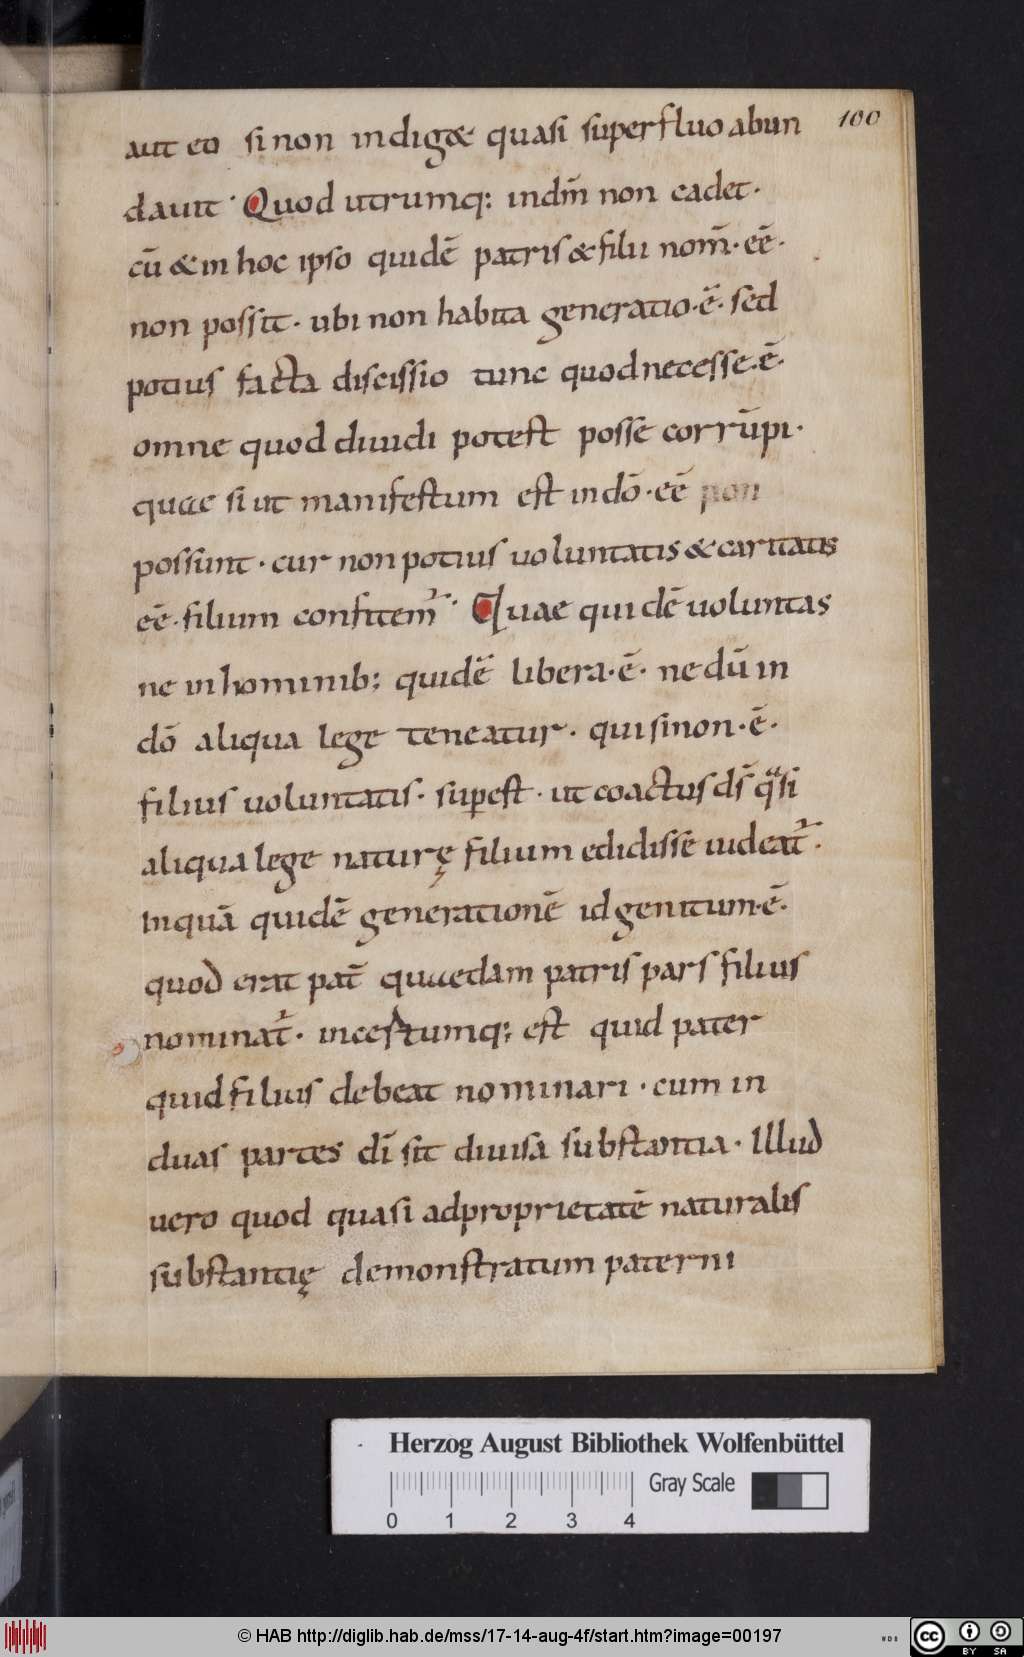 100
aut eo si non indig& quasi superfluo abun
dauit· Quod utrumq; indm̄ non cadet·
cū & in hoc ipso quidē patris & filii nom̄· eē·
non possit· ubi non habita generatio· ē· sed
potius facta discissio tunc quod necesse· ē·
omne quod diuidi potest posse corrūpi·
quae si ut manifestum est in dō· eē non
possunt· cur non potius uoluntatis & caritatis
eē· filium confitem̄· Quae quidē uoluntas
ne in hominib; quidē libera· ē· nedū in
dō aliqua lege teneatur· qui si non· ē·
filius uoluntatis· sup̄est· ut coactus ds̄ qͣsi
aliqua lege naturę filium edidisse uideat̄·
In quā quidē generationē id genitum· ē·
quod erat pat̄ quaedam patris pars filius
nominat̄· incertumq; est quid pater
quid filius debeat nominari· cum in
duas partes dī sit diuisa substantia· Illud
uero quod quasi ad proprietatē naturalis
substantię demonstratum paterni
Herzog August Bibliothek Wolfenbüttel
Gray Scale
0 1 2 3 4
© HAB http://diglib.hab.de/mss/17-14-aug-4f/start.htm?image=00197
WDB
cc BY SA